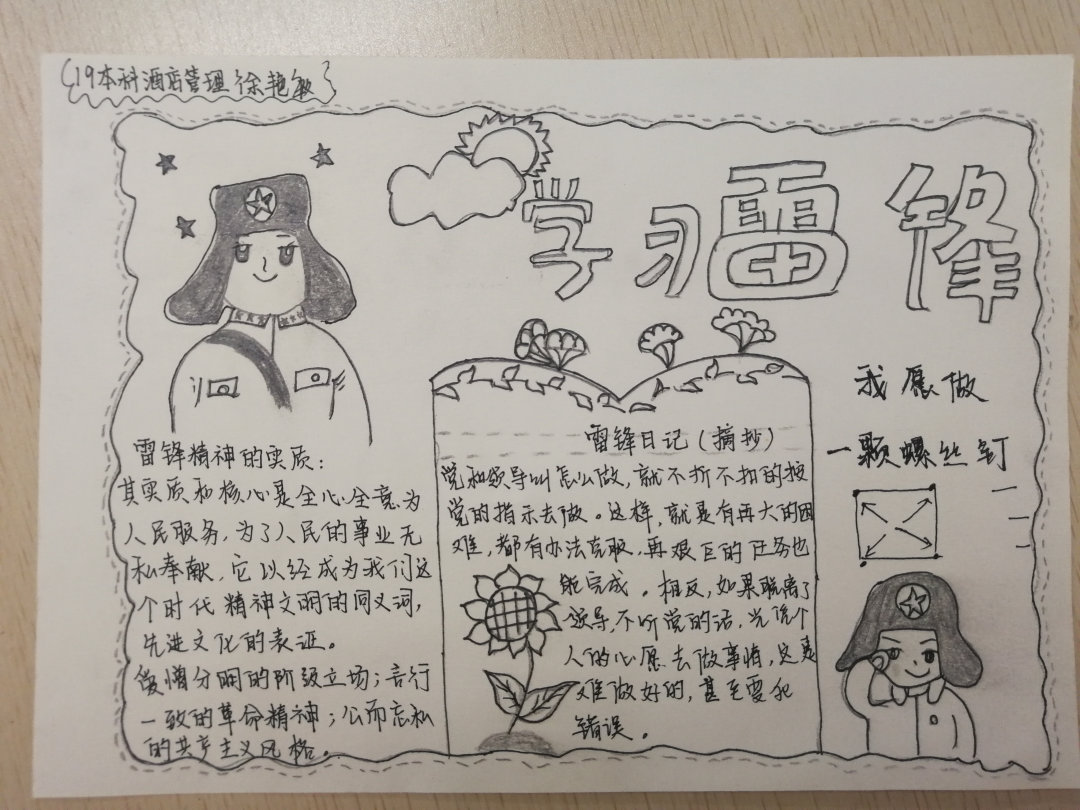 19本科酒店管理 徐艳敏
学习雷锋
雷锋精神的实质：
其实质和核心是全心全意为
人民服务，为了人民的事业无
私奉献，它以经成为我们这
个时代精神文明的同义词，
先进文化的表征。
爱憎分明的阶级立场；言行
一致的革命精神；公而忘私
的共产主义风格。
雷锋日记（摘抄）
党和领导叫怎么做，就不折不扣的按
党的指示去做。这样，就是有再大的困
难，都有办法克服，再艰巨的任务也
能完成。相反，如果脱离了
领导，不听党的话，光凭个
人的心愿去做事情，这是
难做好的，甚至要犯
错误。
我愿做
一颗螺丝钉